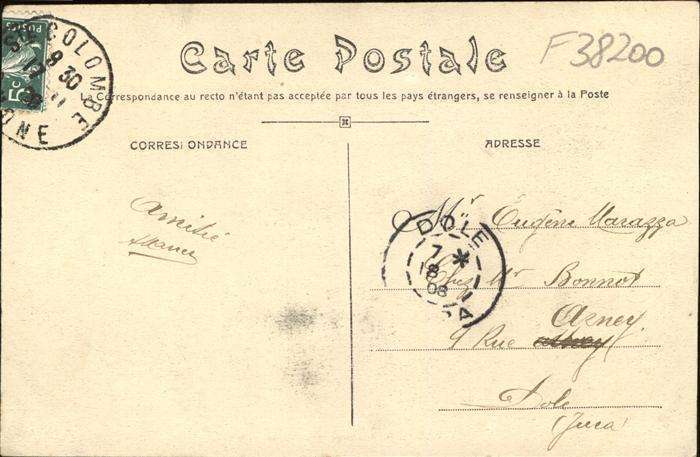 POSTES
COLOMBE
9 30
SAONE
Carte Postale
F38200
La Correspondance au recto n'étant pas acceptée par tous les pays étrangers, se renseigner à la Poste
CORRESPONDANCE
ADRESSE
Amitié
Mr Eugène Marazza
DOLE
7 *
18
08
Chez Mr Bonnot
Azney
9 Rue
Dole
(Jura)